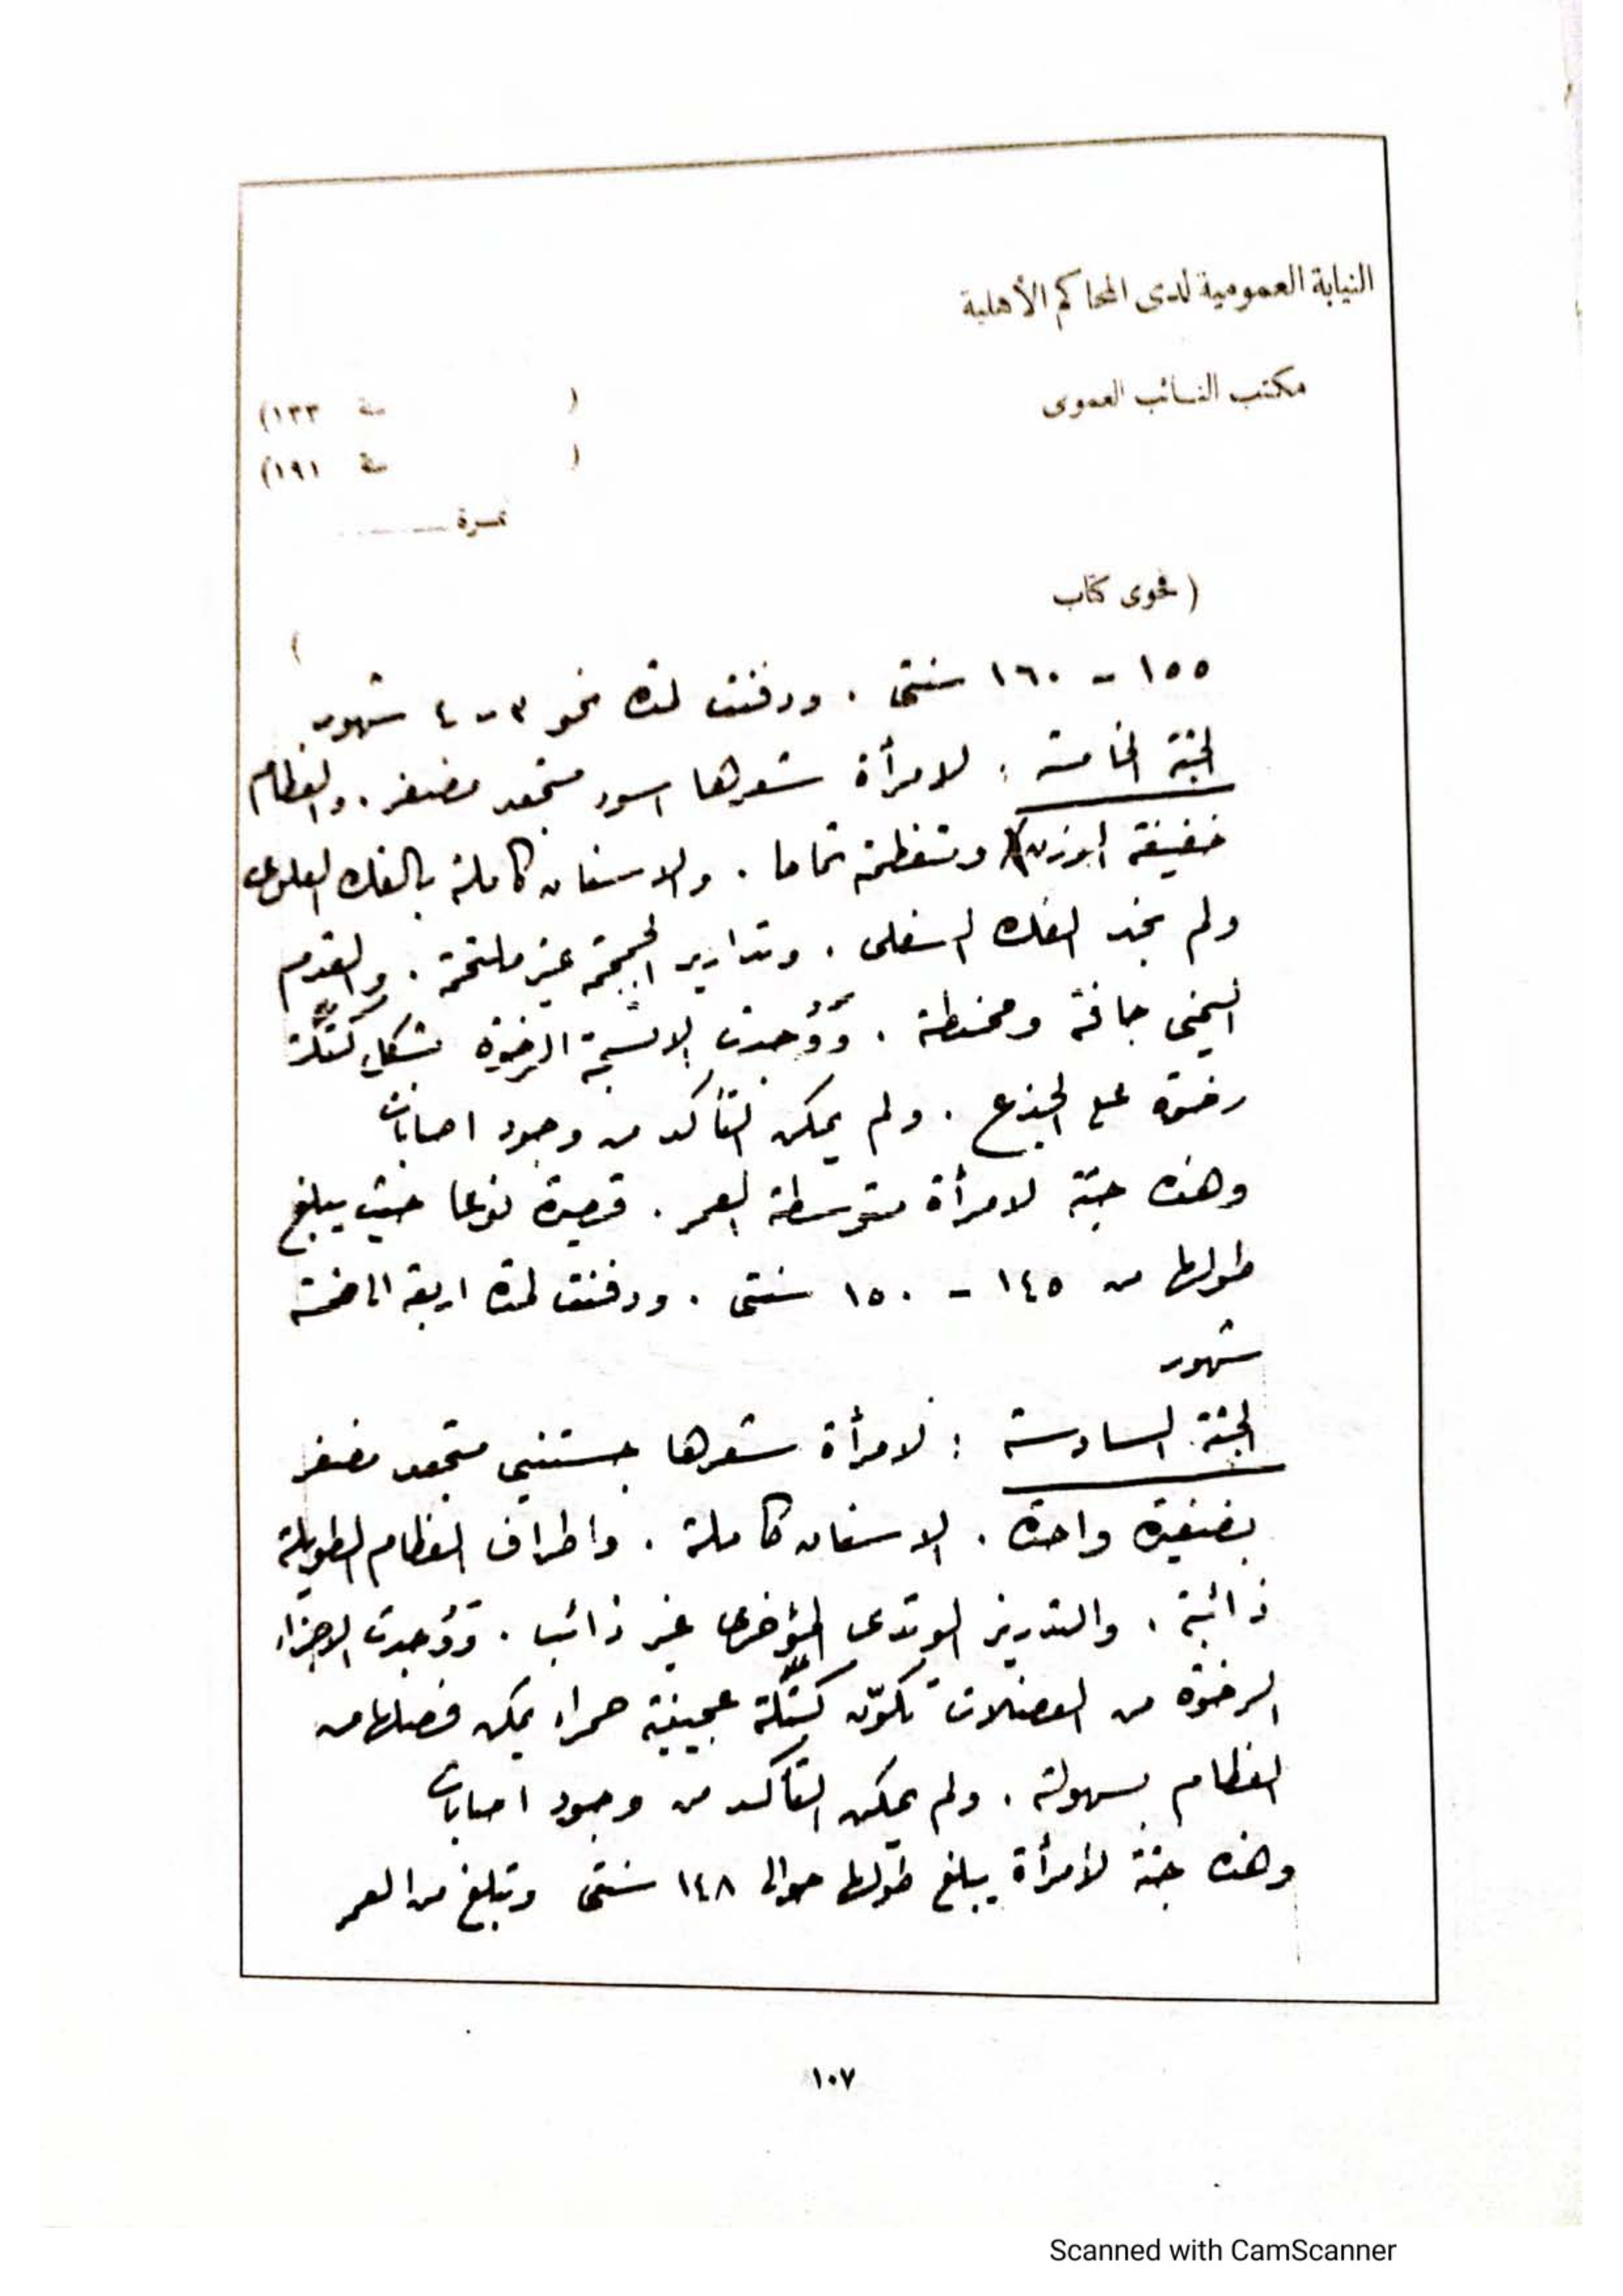 النيابة العمومية لدى المحاكم الأهلية
مكتب النائب العمومى
( سنة ١٣٣)
( سنة ١٩١)
نمرة
( فحوى كتاب
)
١٥٥ - ١٦٠ سنتى . ودفنت لمدة نحو ٣ - ٤ شهور
الجثة الخامسة : لامرأة شعرها اسود متجعد مضفر . والعظام
خفيفة الوزن ومتعظمة تماما . والاسنان كاملة بالفك العلوى
ولم نجد الفك السفلى . وتداريز الجمجمة غير ملتحمة . والقدم
اليمنى جافة ومحنطة . وَوُجدت الانسجة الرخوة بشكل كتلة
رخوة على الجذع . ولم يمكن التأكد من وجود اصابات
وهذه جثة لامرأة متوسطة العمر . قصيرة نوعا حيث يبلغ
طولها من ١٤٥ - ١٥٠ سنتى . ودفنت لمدة اربعة الى خمسة
شهور
الجثة السادسة : لامرأة شعرها جستنيى متجعد مضفر
بضفيرة واحدة . الاسنان كاملة . واطراف العظام الطويلة
ذائبة . والتدريز الوتدى المؤخرى غير ذائب . وَوُجدت الاجزاء
الرخوة من العضلات تكوّن كتلة عجينية حمراء يمكن فصلها من
العظام بسهولة . ولم يمكن التأكد من وجود اصابات
وهذه جثة لأمرأة يبلغ طولها حوالى ١٤٨ سنتى وتبلغ من العمر
١٠٧
Scanned with CamScanner